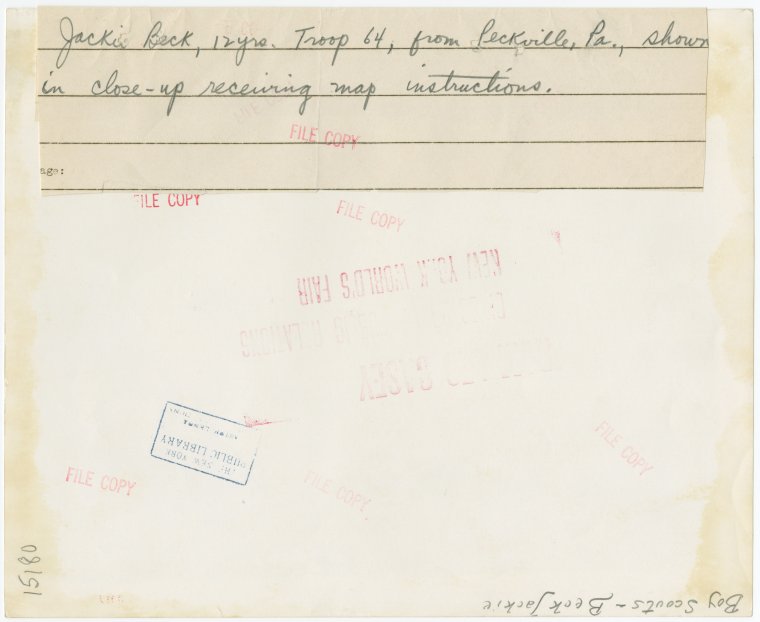 Jackie Beck, 12 yrs. Troop 64, from Peckville, Pa., shown
in close-up receiving map instructions.
FILE COPY
age:
FILE COPY
FILE COPY
NEW YORK WORLD'S FAIR
RELATIONS
CASEY
THE NEW YORK
PUBLIC LIBRARY
FILE COPY
FILE COPY
FILE COPY
15180
Boy Scouts - Beck Jackie